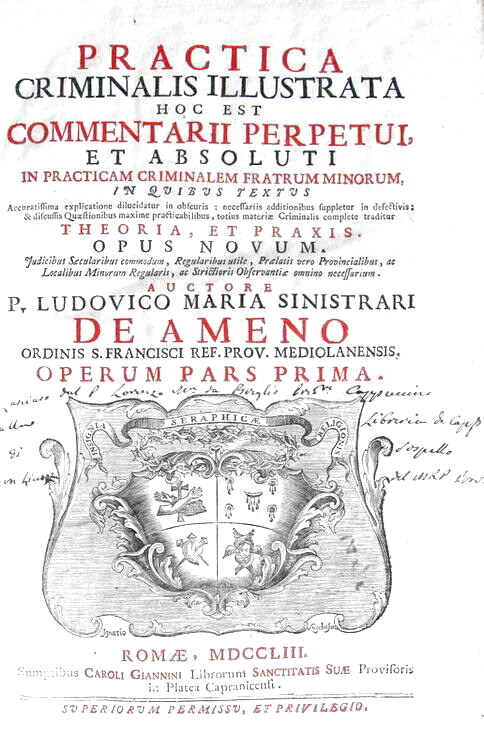 PRACTICA
CRIMINALIS ILLUSTRATA
HOC EST
COMMENTARII PERPETUI,
ET ABSOLUTI
IN PRACTICAM CRIMINALEM FRATRUM MINORUM,
IN QVIBVS TEXTVS
Accuratissima explicatione dilucidatur in obscuris; necessariis additionibus suppletur in defectivis;
& discussis Quæstionibus maxime practicabilibus, totius materiæ Criminalis complete traditur
THEORIA, ET PRAXIS.
OPUS NOVUM.
Judicibus Sæcularibus commodum, Regularibus utile, Prælatis vero Provincialibus, ac
Localibus Minorum Regularis, ac Strictioris Observantiæ omnino necessarium.
AUCTORE
P. LUDOVICO MARIA SINISTRARI
DE AMENO
ORDINIS S. FRANCISCI REF. PROV. MEDIOLANENSIS.
OPERUM PARS PRIMA.
del P. Lorenzo Ma. da Cappuccino
Libreria de Capp.
di Sospello
del MRP
INSIGNIA SERAPHICÆ RELIGIONIS
Ignatio
ROMÆ, MDCCLIII.
Sumptibus CAROLI GIANNINI Librorum SANCTITATIS SUÆ Provisoris
in Platea Capranicensi.
SUPERIORVM PERMISSV, ET PRIVILEGIO.